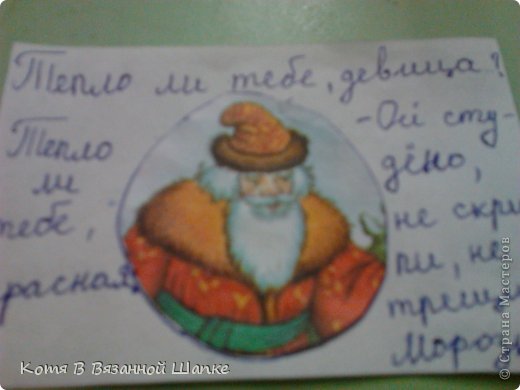 Тепло ли тебе, девица?
Тепло
ли
тебе,
расная,
-Ой сту-
дёно,
не скри
пи, не
трещи
Моро
Котя В Вязанной Шапке
© Страна Мастеров